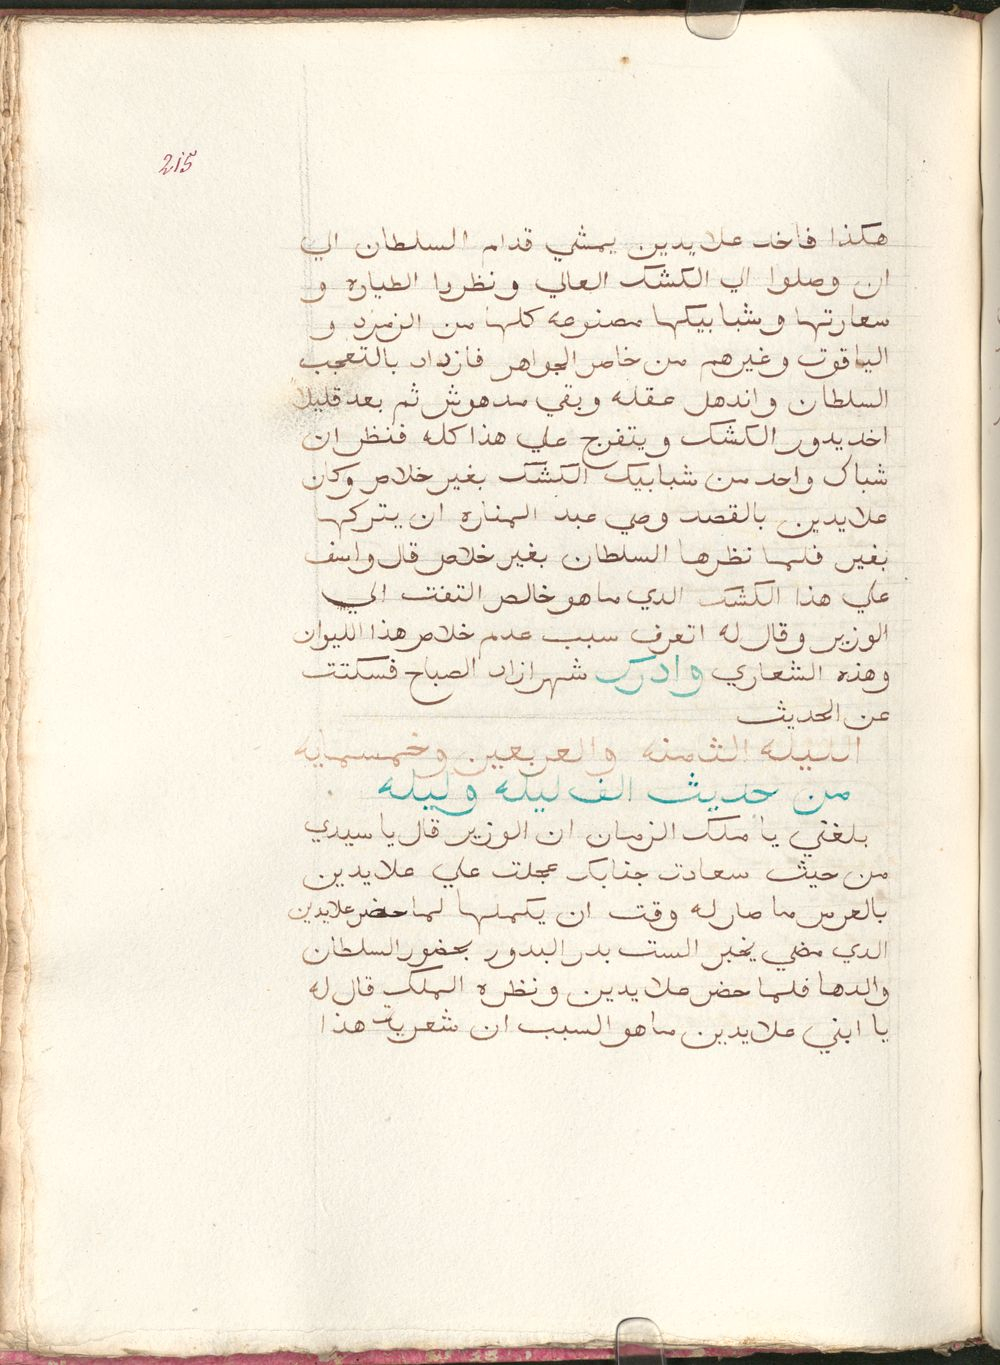 215
هكذا فاخد علايدين يمشي قدام السلطان الي
ان وصلوا الي الكشك العالي ونظروا الطياره و
سعارتها وشبابيكها مصنوعه كلها من الزمرد و
الياقوت وغيرهم من خاص الجواهر فازداد بالتعجب
السلطان واندهل عقله وبقي مدهوش ثم بعد قليلا
اخد يدور الكشك ويتفرج علي هذا كله فنظر ان
شباك واحد من شبابيك الكشك بغير خلاص وكان
علايدين بالقصد وصي عبد المناره ان يتركها
بغير فلما نظرها السلطان بغير خلاص قال وااسف
علي هذا الكشك الدي ما هو خالص التفت الي
الوزير وقال له اتعرف سبب عدم خلاص هذا الليوان
وهذه الشعاري وادرك شهرازاد الصباح فسكتت
عن الحديث
الليله الثامنه والعربعين وخمسمايه
من حديث الف ليله وليله
بلغني يا ملك الزمان ان الوزير قال يا سيدي
من حيث سعادت جنابك عجلت علي علايدين
بالعرس ما صار له وقت ان يكملها لما حضر علايدين
الدي مضي يخبر الست بدر البدور بحضور السلطان
والدها فلما حضر علايدين ونظره الملك قال له
يا ابني علايدين ما هو السبب ان شعرية هذا